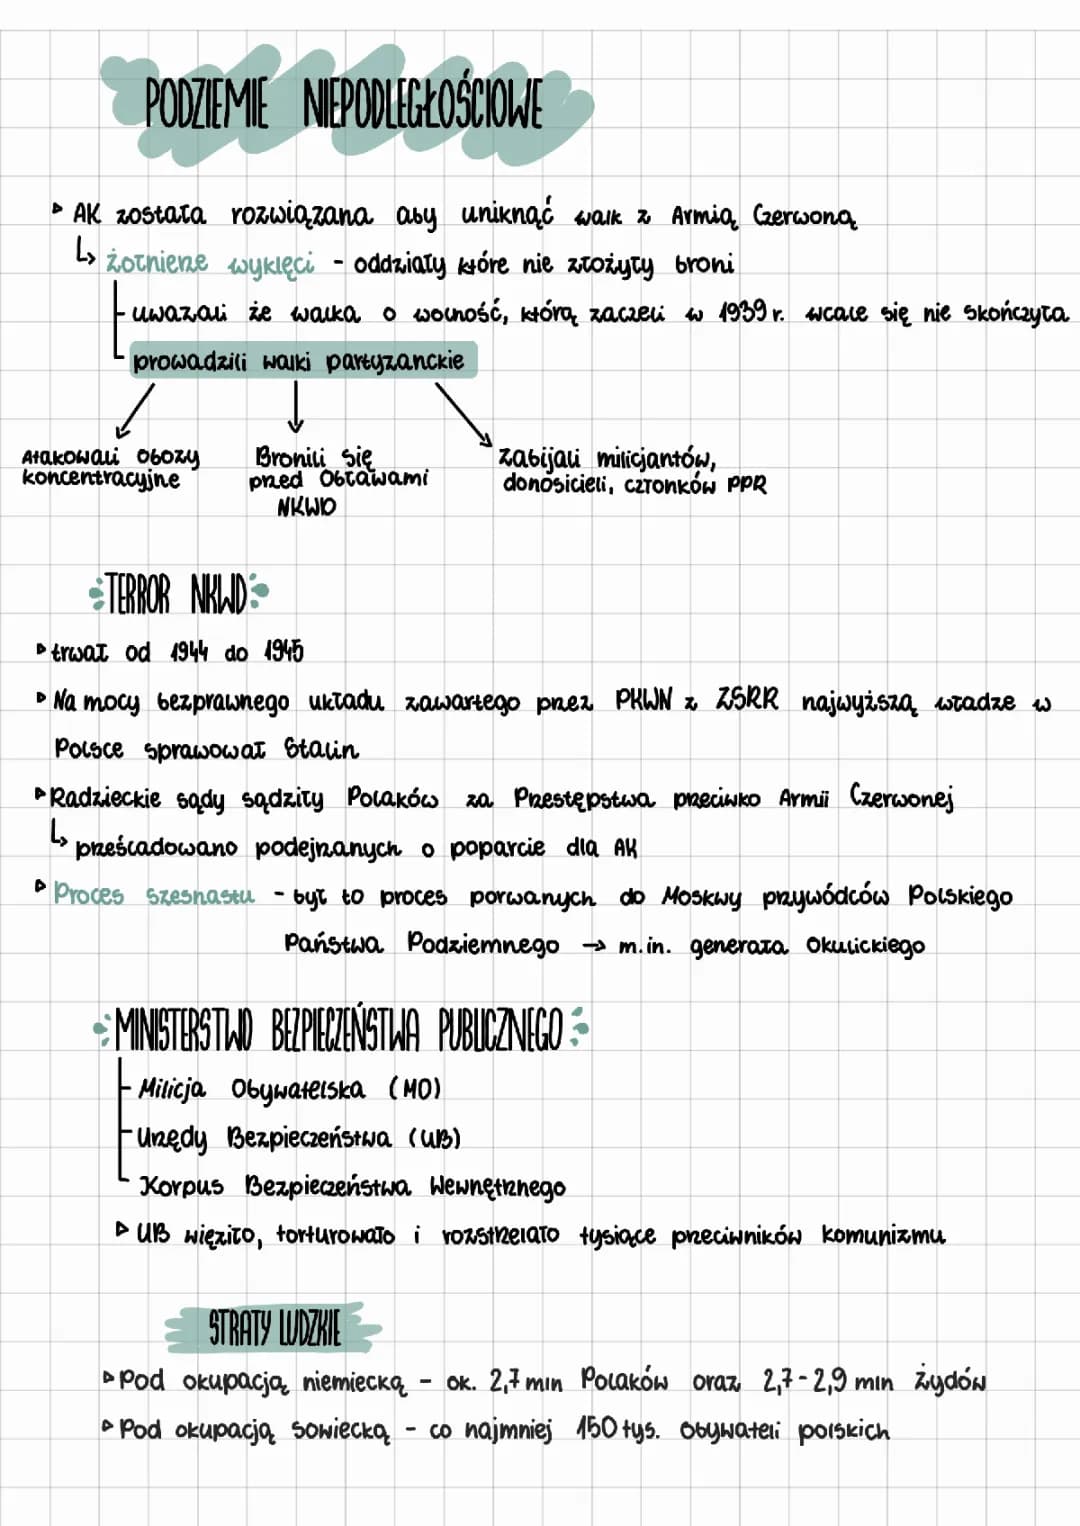 PODZIEMIE NIEPODLEGŁOŚCIOWE
AK została rozwiązana aby uniknąć walk z Armią Czerwoną
↳ żołnierze wyklęci - oddziały które nie złożyły broni
- uważali że walka o wolność, którą zaczeli w 1939 r. wcale się nie skończyła
prowadzili walki partyzanckie
Atakowali obozy
koncentracyjne
Bronili się
przed Obławami
NKWD
zabijali milicjantów,
donosicieli, członków PPR
TERROR NKWD
trwał od 1944 do 1945
Na mocy bezprawnego układu zawartego przez PKWN z ZSRR najwyższą władze w
Polsce sprawował Stalin
Radzieckie sądy sądziły Polaków za Przestępstwa przeciwko Armii Czerwonej
↳ prześladowano podejrzanych o poparcie dla AK
Proces szesnastu - był to proces porwanych do Moskwy przywódców Polskiego
Państwa Podziemnego → m.in. generała Okulickiego
MINISTERSTWO BEZPIECZEŃSTWA PUBLICZNEGO
- Milicja Obywatelska (MO)
- Urzędy Bezpieczeństwa (UB)
Korpus Bezpieczeństwa Wewnętrznego
UB więziło, torturowało i rozstrzelało tysiące przeciwników komunizmu
STRATY LUDZKIE
Pod okupacją niemiecką - ok. 2,7 mln Polaków oraz 2,7-2,9 mln żydów
Pod okupacją sowiecką - co najmniej 150 tys. obywateli polskich